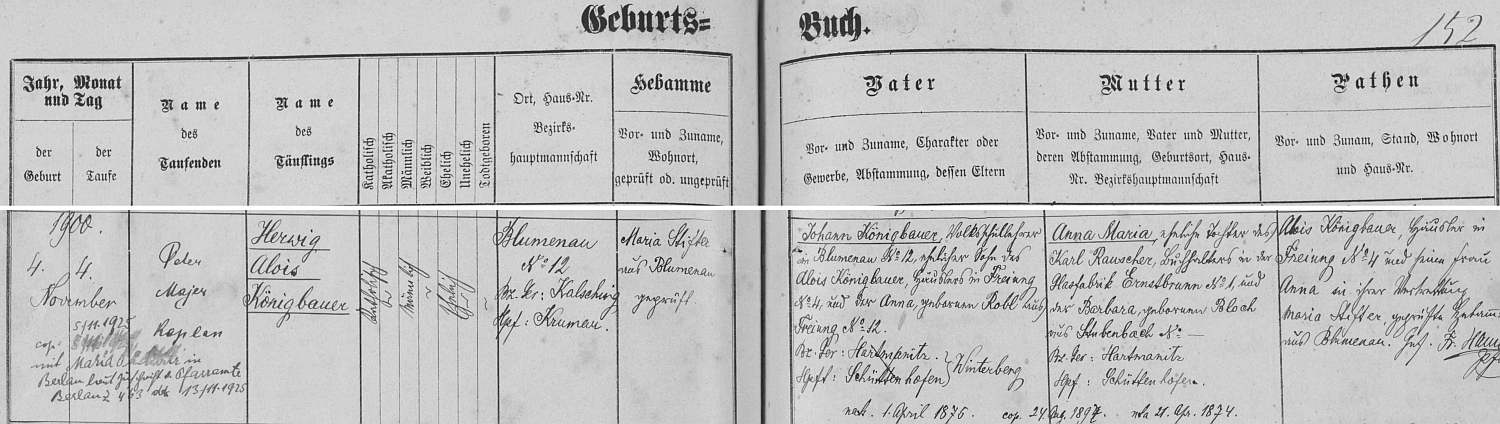 Geburts=
Buch.
152
Jahr, Monat und Tag
der Geburt
der Taufe
Name des Taufenden
Name des Täuflings
Katholisch
Akatholisch
Männlich
Weiblich
Ehelich
Unehelich
Todtgeboren
Ort, Haus-Nr.
Bezirks-
hauptmannschaft
Hebamme
Vor- und Zuname,
Wohnort,
geprüft od. ungeprüft
Vater
Vor- und Zuname, Charakter oder
Gewerbe, Abstammung, dessen Eltern
Mutter
Vor- und Zuname, Vater und Mutter,
deren Abstammung, Geburtsort, Haus-
Nr. Bezirkshauptmannschaft
Pathen
Vor- und Zunam, Stand, Wohnort
und Haus-Nr.
1900.
4. 4.
November
5/11.1925
cop:
mit Maria in
Berlau laut Zuschrift d. Pfarramte
Berlau Z 463 ddt 13/11 1925
Peter
Majer
Kaplan
Herwig
Alois
Königbauer
Katholisch
männlich
Ehelich
Blumenau
No 12
Bz. Ger: Kalsching
Hpf: Krumau.
Maria Stifter
aus Blumenau
geprüft.
Johann Königbauer, Volksschullehrer
in Blumenau No 12, ehelicher Sohn des
Alois Königbauer, Häuslers in Freiung
No 4, und der Anna, geborenen Robl aus
Freiung No 12.
Bz. Ger: Hartmanitz.
Hptf: Schüttenhofen } Winterberg
nat. 1. April 1876. cop. 24. Aug. 1897.
Anna Maria, eheliche Tochter des
Karl Rauscher, Buchhalters in der
Glasfabrik Ernstbrunn No 1, und
der Barbara, geborenen Bloch
aus Stubenbach No —
Bz. Ger: Hartmanitz
Hpf: Schüttenhofen.
nta 21. Apr. 1874.
Alois Königbauer Häusler in
Freiung No 4 und seine Frau
Anna in ihrer Vertretung
Maria Stifter, geprüfte Hebam̄e
aus Blumenau.